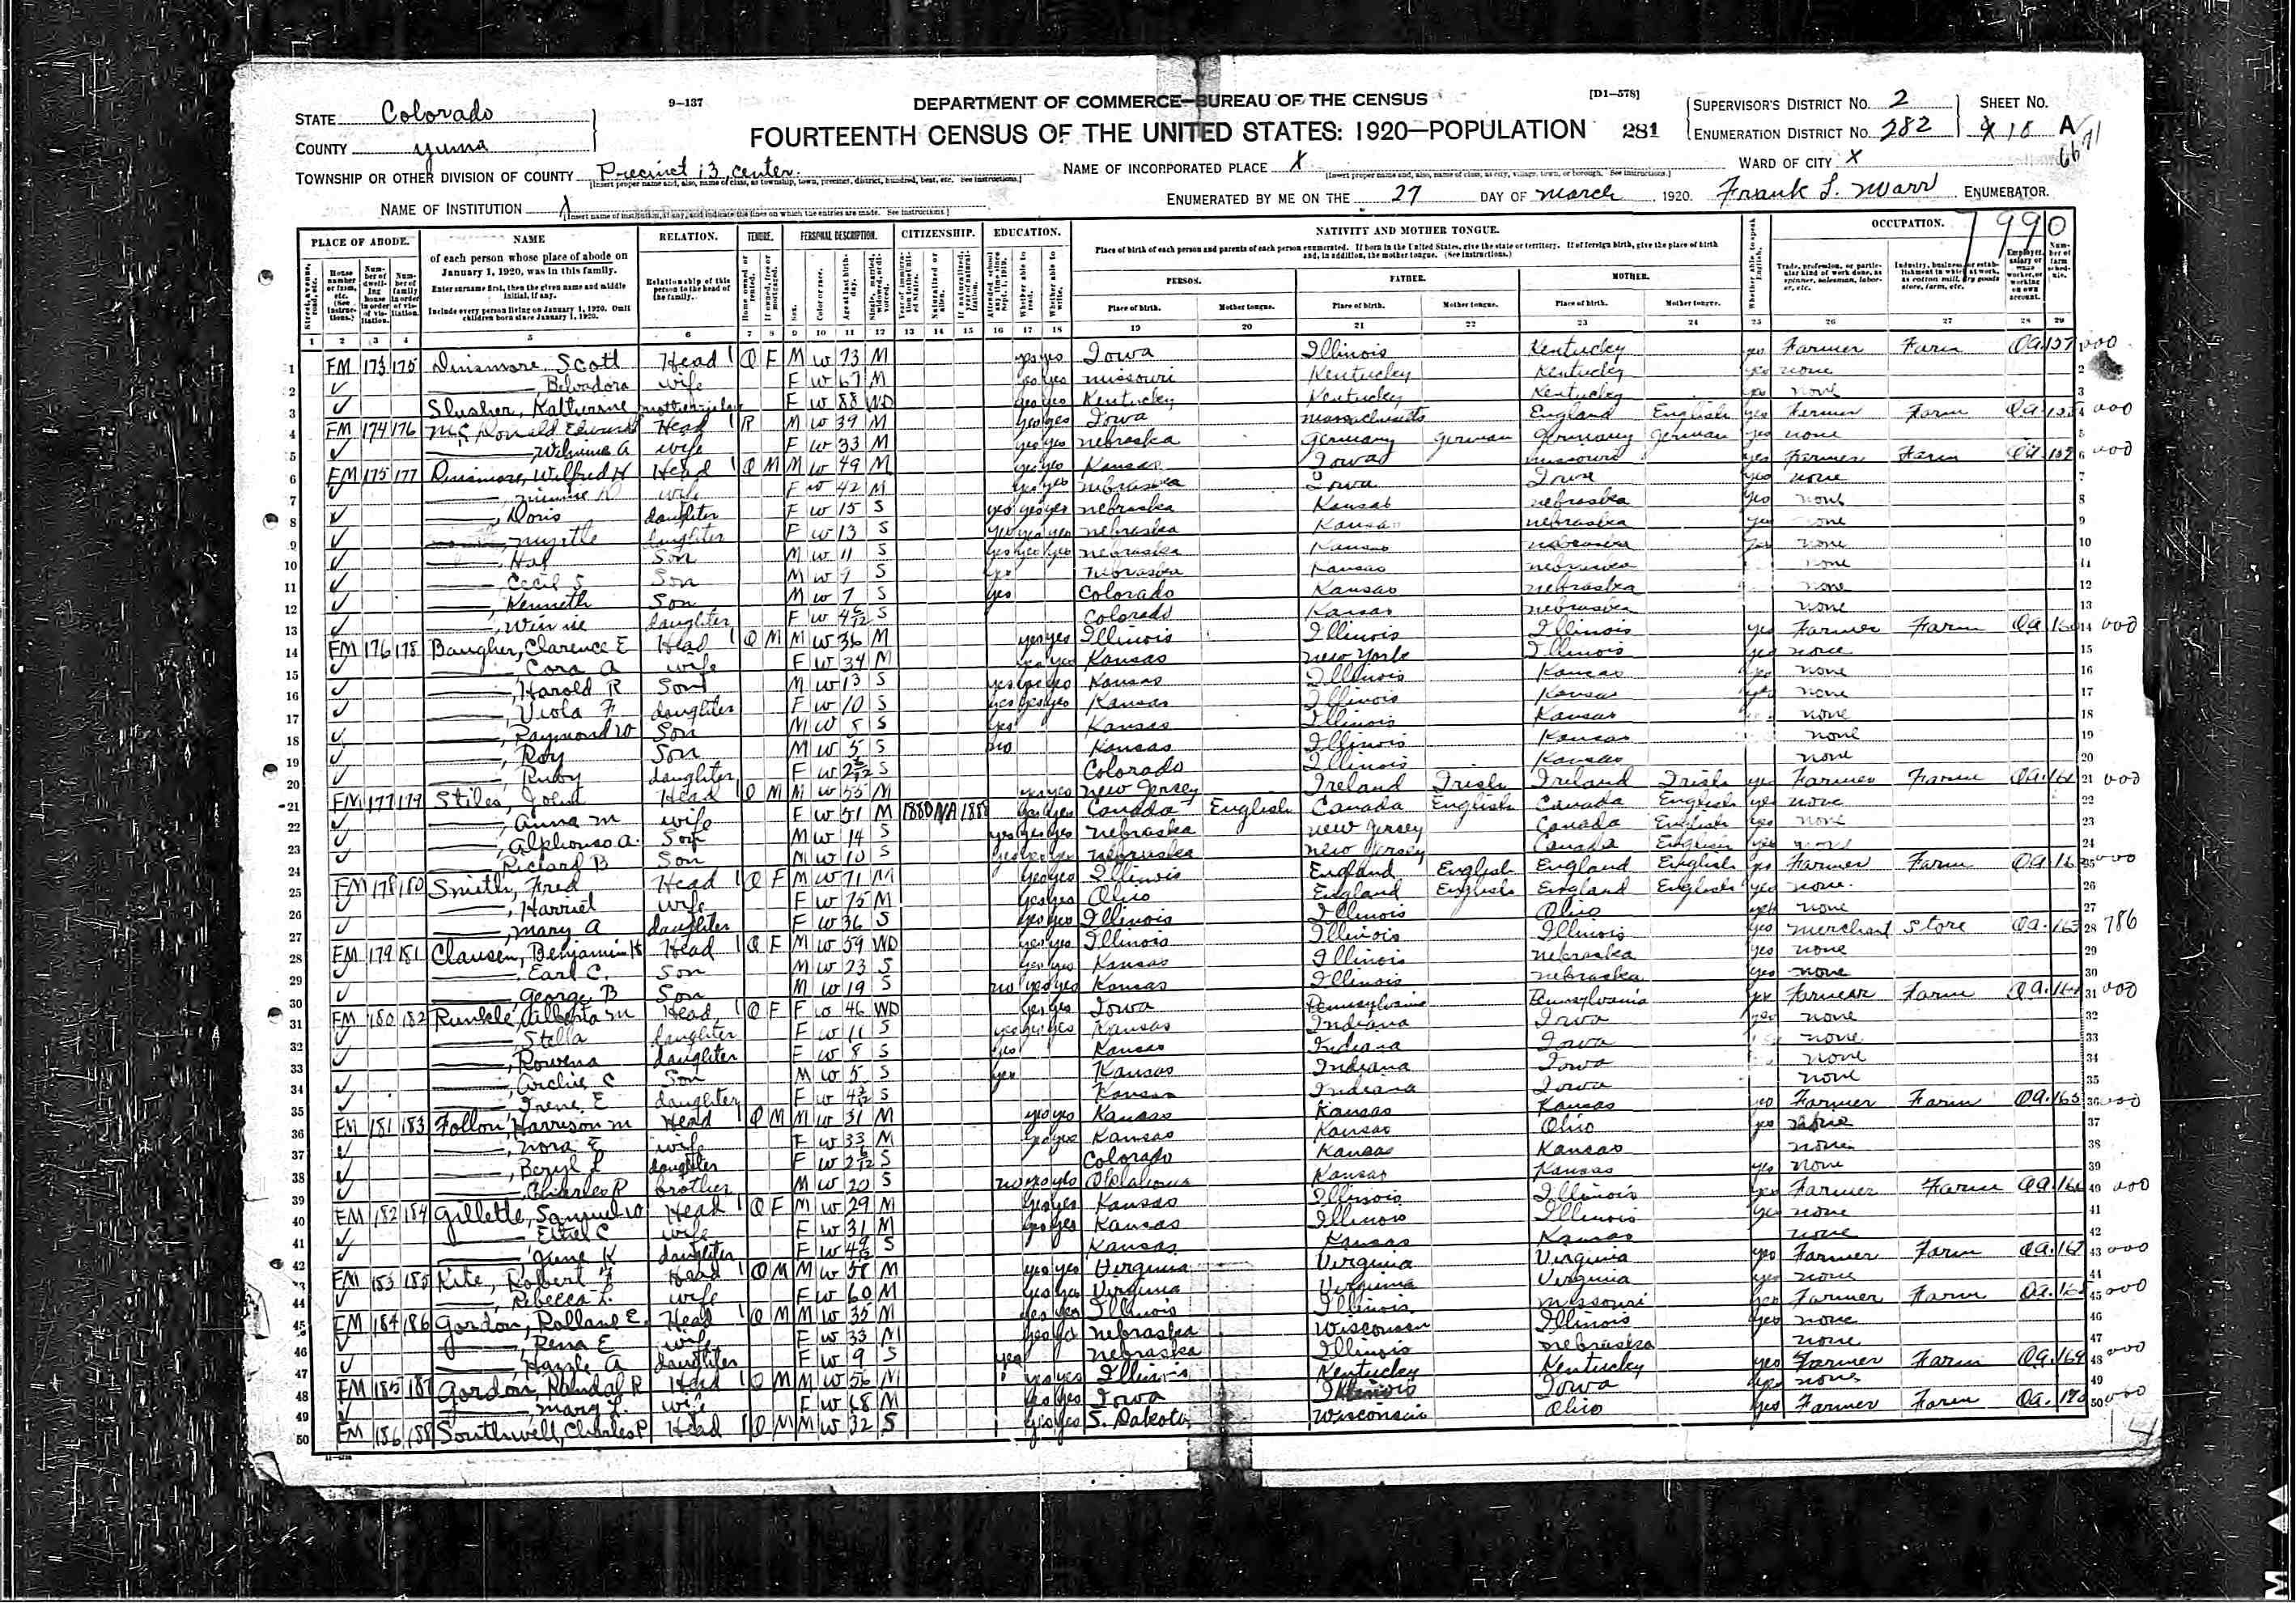 9-137
DEPARTMENT OF COMMERCE—BUREAU OF THE CENSUS
[D1-578]
STATE Colorado
COUNTY Yuma
FOURTEENTH CENSUS OF THE UNITED STATES: 1920—POPULATION 281
SUPERVISOR'S DISTRICT No. 2
ENUMERATION DISTRICT No. 282
SHEET No.
10 A
TOWNSHIP OR OTHER DIVISION OF COUNTY Precinct 13, center.
NAME OF INCORPORATED PLACE X
WARD OF CITY X
NAME OF INSTITUTION X
ENUMERATED BY ME ON THE 27 DAY OF March, 1920. Frank L. Marr ENUMERATOR.
7990
PLACE OF ABODE. NAME RELATION. TENURE. PERSONAL DESCRIPTION. CITIZENSHIP. EDUCATION. NATIVITY AND MOTHER TONGUE. OCCUPATION.
of each person whose place of abode on January 1, 1920, was in this family.
Enter surname first, then the given name and middle initial, if any.
Include every person living on January 1, 1920. Omit children born since January 1, 1920.
Relationship of this person to the head of the family.
Place of birth of each person and parents of each person enumerated. If born in the United States, give the state or territory. If of foreign birth, give the place of birth and, in addition, the mother tongue. (See instructions.)
PERSON. FATHER. MOTHER.
Place of birth. Mother tongue. Place of birth. Mother tongue. Place of birth. Mother tongue.
1 2 3 4 5 6 7 8 9 10 11 12 13 14 15 16 17 18 19 20 21 22 23 24 25 26 27 28 29
1 FM 173 175 Dinsmore, Scott Head 1 O F M W 73 M yes yes Iowa Illinois Kentucky yes Farmer Farm OA 157
2 Belvadora wife F W 67 M yes yes Missouri Kentucky Kentucky yes none
3 Slusher, Katherine F W 88 WD yes yes Kentucky Kentucky Kentucky yes none
4 FM 174 176 Head 1 R M W 39 M yes yes Iowa Massachusetts England English yes Farmer Farm OA
5 wife F W 33 M yes yes Nebraska Germany German Germany German yes none
6 FM 175 177 Dinsmore, Wilfred H Head 1 O M M W 49 M yes yes Kansas Iowa Missouri yes Farmer Farm OA 159
7 wife F W 42 M yes yes Nebraska Iowa Iowa yes none
8 Doris daughter F W 15 S yes yes yes Nebraska Kansas Nebraska yes none
9 Myrtle daughter F W 13 S yes yes yes Nebraska Kansas Nebraska yes none
10 Hal Son M W 11 S yes yes yes Nebraska Kansas Nebraska yes none
11 Cecil S Son M W 9 S yes Nebraska Kansas Nebraska none
12 Kenneth Son M W 7 S yes Colorado Kansas Nebraska none
13 daughter F W S Colorado Kansas Nebraska none
14 FM 176 178 Baugher, Clarence E Head 1 O M M W 36 M yes yes Illinois Illinois Illinois yes Farmer Farm OA 160
15 Cora A wife F W 34 M yes yes Kansas New York Illinois yes none
16 Harold R Son M W 13 S yes yes yes Kansas Illinois Kansas yes none
17 Viola F daughter F W 10 S yes yes yes Kansas Illinois Kansas yes none
18 Raymond W Son M W 8 S yes Kansas Illinois Kansas none
19 Roy Son M W 5 S no Kansas Illinois Kansas none
20 Ruby daughter F W S Colorado Illinois Kansas none
21 FM 177 179 Stiles, John Head 1 O M M W 55 M yes yes New Jersey Ireland Irish Ireland Irish yes Farmer Farm OA 161
22 Anna M wife F W 51 M 1880 NA 1888 yes yes Canada English Canada English Canada English yes none
23 Alphonso A. Son M W 14 S yes yes yes Nebraska New Jersey Canada English yes none
24 Richard B Son M W 10 S yes yes yes Nebraska New Jersey Canada English yes none
25 FM 178 180 Smith, Fred Head 1 O F M W 71 M yes yes Illinois England English England English yes Farmer Farm OA 162
26 Harriet wife F W 75 M yes yes Ohio England English England English yes none
27 Mary A daughter F W 36 S yes yes Illinois Illinois Ohio yes none
28 FM 179 181 Clausen, Benjamin H Head 1 O F M W 59 WD yes yes Illinois Illinois Illinois yes Merchant Store OA 163 786
29 Earl C. Son M W 23 S yes yes Kansas Illinois Nebraska yes none
30 George B Son M W 19 S no yes yes Kansas Illinois Nebraska yes none
31 FM 180 182 Runkle, Alberta M Head 1 O F F W 46 WD yes yes Iowa Pennsylvania Pennsylvania yes Farmer Farm OA 164
32 Stella daughter F W 11 S yes yes yes Kansas Indiana Iowa yes none
33 Rowena daughter F W 8 S yes Kansas Indiana Iowa none
34 Archie C Son M W 5 S yes Kansas Indiana Iowa none
35 Irene E daughter F W S Kansas Indiana Iowa none
36 FM 181 183 Harrison M Head 1 O M M W 31 M yes yes Kansas Kansas Kansas yes Farmer Farm OA 165
37 Nora E wife F W 33 M yes yes Kansas Kansas Ohio yes none
38 Beryl L daughter F W S Colorado Kansas Kansas none
39 Charles P brother M W 20 S no yes yes Oklahoma Kansas Kansas yes none
40 FM 182 184 Gillette, Samuel W Head 1 O F M W 29 M yes yes Kansas Illinois Illinois yes Farmer Farm OA 166
41 Ethel C wife F W 31 M yes yes Kansas Illinois Illinois yes none
42 June K daughter F W S Kansas Kansas Kansas none
43 FM 183 185 Kite, Robert F Head 1 O M M W 58 M yes yes Virginia Virginia Virginia yes Farmer Farm OA 167
44 Rebecca L. wife F W 60 M yes yes Virginia Virginia Virginia yes none
45 FM 184 186 Gordon, Rolland E. Head 1 O M M W 35 M yes yes Illinois Illinois Missouri yes Farmer Farm OA 168
46 Rena E wife F W 33 M yes yes Nebraska Wisconsin Illinois yes none
47 Hazzle A daughter F W 9 S yes Nebraska Illinois Nebraska none
48 FM 185 187 Gordon, Randal R Head 1 O M M W 56 M yes yes Illinois Kentucky Kentucky yes Farmer Farm OA 169
49 Mary L. wife F W 68 M yes yes Iowa Illinois Iowa yes none
50 FM 186 188 Southwell, Charles P Head 1 O M M W 32 S yes yes S. Dakota Wisconsin Ohio yes Farmer Farm OA 170